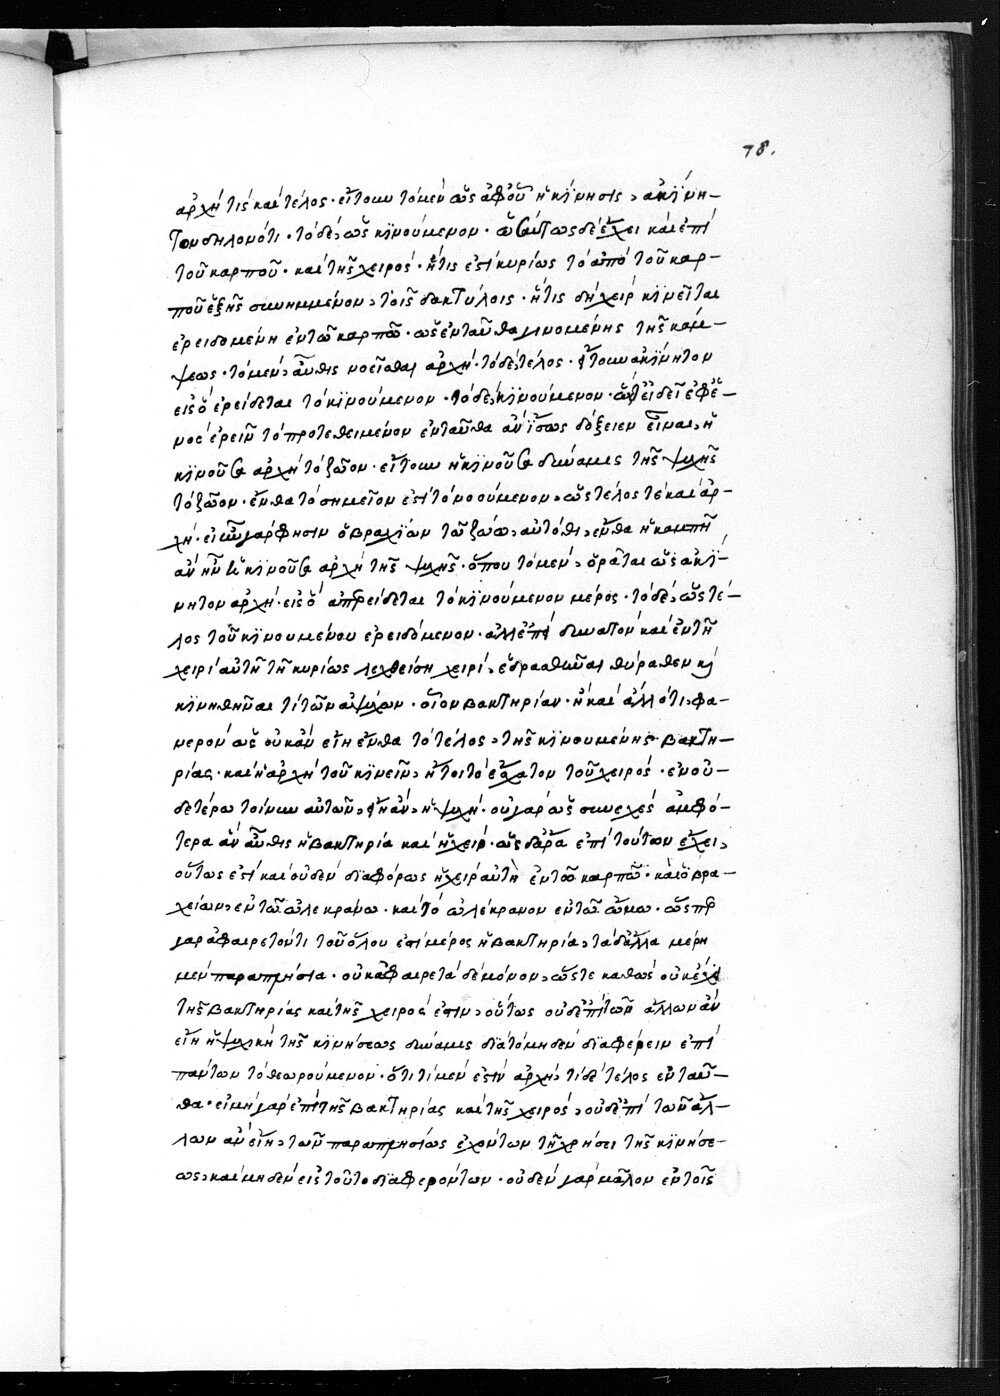 78.
ἀρχή τις καὶ τέλος· εἴτουν τὸ μὲν ὡς ἀφ' οὗ ἡ κίνησις, ἀκίνη-
τον δηλονότι· τὸ δὲ, ὡς κινούμενον· ὡσαύτως δὲ ἔχει καὶ ἐπὶ
τοῦ καρποῦ· καὶ τῆς χειρός· ἥτις ἐστὶ κυρίως τὸ ἀπὸ τοῦ καρ-
ποῦ ἑξῆς συνημμένον, τοῖς δακτύλοις· ἥτις δὴ χεὶρ κινεῖται
ἐρειδομένη ἐν τῶ καρπῶ· ὡς ἐνταῦθα γινομένης τῆς κάμ-
ψεως· τὸ μὲν, αὖθις νοεῖσθαι ἀρχή· τὸ δὲ, τέλος· ἤτουν ἀκίνητον
εἰς ὃ ἐρείδεται τὸ κινούμενον· τὸ δὲ, κινούμενον· εἰ δεῖ ἐφε-
ἐρεῖν τὸ προτεθειμένον ἐνταῦθα ἂν ἴσως δόξειεν εἶναι, ἡ
κινοῦσα ἀρχὴ τὸ ζῶον· εἴτουν ἡ κινοῦσα δύναμις τῆς ψυχῆς
τὸ ζῶον· ἔνθα τὸ σημεῖον ἐστὶ τὸ νοούμενον, ὡς τέλος τὲ καὶ ἀρ-
χή· εἰ γὰρ φησὶν ὁ βραχίων τῶ ζώω, αὐτόθι, ἔνθα ἡ καμπὴ
ἂν ἦν ἡ κινοῦσα ἀρχὴ τῆς ψυχῆς· ὅπου τὸ μὲν, ὁρᾶται ὡς ἀκί-
νητον ἀρχή· εἰς ὃ ἀπερείδεται τὸ κινούμενον μέρος· τὸ δὲ, ὡς τέ-
λος τοῦ κινουμένου ἐρειδόμενον· ἀλλ' ἐπεὶ δυνατὸν καὶ ἐν τῆ
χειρὶ αὐτῆ τῆ κυρίως λεχθείση χειρὶ, ἑδρασθῆναι θύραθεν καὶ
κινηθῆναι τὶ τῶν ἀψύχων· οἷον βακτηρίαν· ἢ καὶ ἄλλό τι, φα-
νερὸν ὡς οὐκ ἂν εἴη ἔνθα τὸ τέλος, τῆς κινουμένης βακτη-
ρίας· καὶ ἡ ἀρχὴ τοῦ κινεῖν, ἤτοι τὸ ἔσχατον τοῦ χειρός· ἐν οὐ-
δετέρω τοίνυν αὐτῶν, ἦν ἂν, ἡ ψυχή· οὐ γὰρ ὡς συνεχὲς ἀμφό-
τερα ἂν αὖθις ἡ βακτηρία καὶ ἡ χείρ· ὡς δ' ἄρα ἐπὶ τούτων ἔχει,
οὕτως ἐστὶ καὶ οὐδὲν διαφόρως ἡ χεὶρ αὐτὴ ἐν τῶ καρπῶ· καὶ ὁ βρα-
χείων, ἐν τῶ ὠλεκράνω· καὶ τὸ ὠλέκρανον ἐν τῶ ὤμω· ὥσπερ
γὰρ ἀφαιρετόν τι τοῦ ὅλου ἐστὶ μέρος ἡ βακτηρία, τὰ δ' ἄλλα μέρη
μὲν παραπλήσια· οὐκ ἀφαιρετὰ δὲ μόνον, ὥστε καθὼς οὐκ
τῆς βακτηρίας καὶ τῆς χειρός ἐστιν, οὕτως οὐδ' ἐπὶ τῶν ἄλλων ἂν
εἴη ἡ ψυχικὴ τῆς κινήσεως δύναμις διὰ τὸ μηδὲν διαφέρειν ἐπὶ
πάντων τὸ θεωρούμενον· ὅτι τί μὲν ἐστὶν ἀρχὴ, τί δὲ τέλος ἐνταῦ-
θα· εἰ μὴ γὰρ ἐπὶ τῆς βακτηρίας καὶ τῆς χειρὸς, οὐδ' ἐπὶ τῶν ἄλ-
λων ἂν εἴη, τῶν παραπλησίως ἐχόντων τῆ χρήσει τῆς κινήσε-
ως, καὶ μηδὲν εἰς τοῦτο διαφερόντων· οὐδὲν γὰρ μᾶλλον ἐν τοῖς